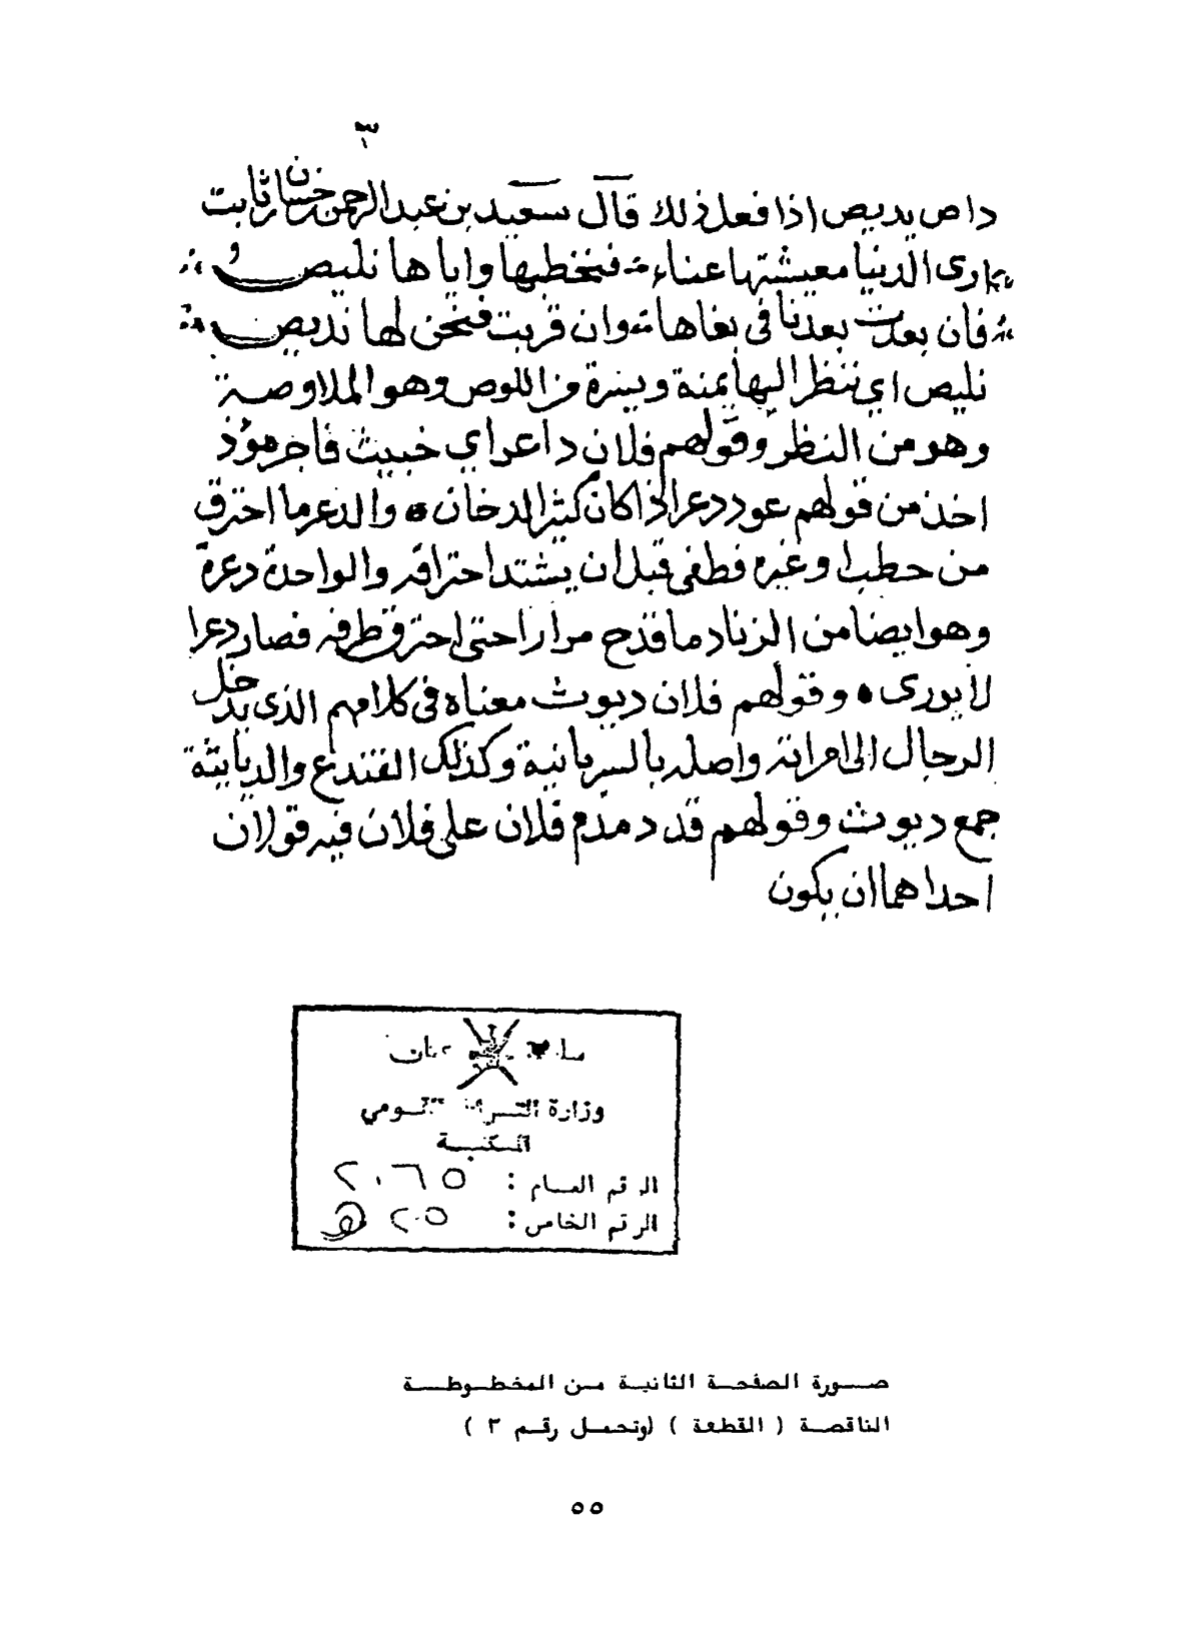 ٣
داص يديص اذا فعل ذلك قال سعيد بن عبد الرحمن بن حسان بن ثابت
ارى الدنيا معيشتها عناء فنخطبها واياها نليص
فان بعدت بعدنا في بغاها وان قربت فنحن لها نديص
نليص اي ننظر اليها يمنة ويسرة من اللوص وهو الملاوصة
وهو من النظر وقولهم فلان داعر اي خبيث فاجر مؤذ
اخذ من قولهم عود دعر اذا كان كثير الدخان والدعر ما احترق
من حطب او غيره فطفى قبل ان يشتد احتراقه والواحدة دعرة
وهو ايضا من الزناد ما قدح مرارا حتى احترق طرفه فصار دعرا
لا يورى وقولهم فلان ديوث معناه في كلامهم الذى يدخل
الرجال الى امراته واصله بالسريانية وكذلك القنذع والديايثة
جمع ديوث وقولهم قد دمدم فلان على فلان فيه قولان
احداهما ان يكون
عمان
وزارة التراث القومي
المكتبة
الرقم العام : ٢٠٦٥
الرقم الخاص : ٢٠٥
صورة الصفحة الثانية من المخطوطة
الناقصة ( القطعة ) (وتحمل رقم ٣ )
٥٥